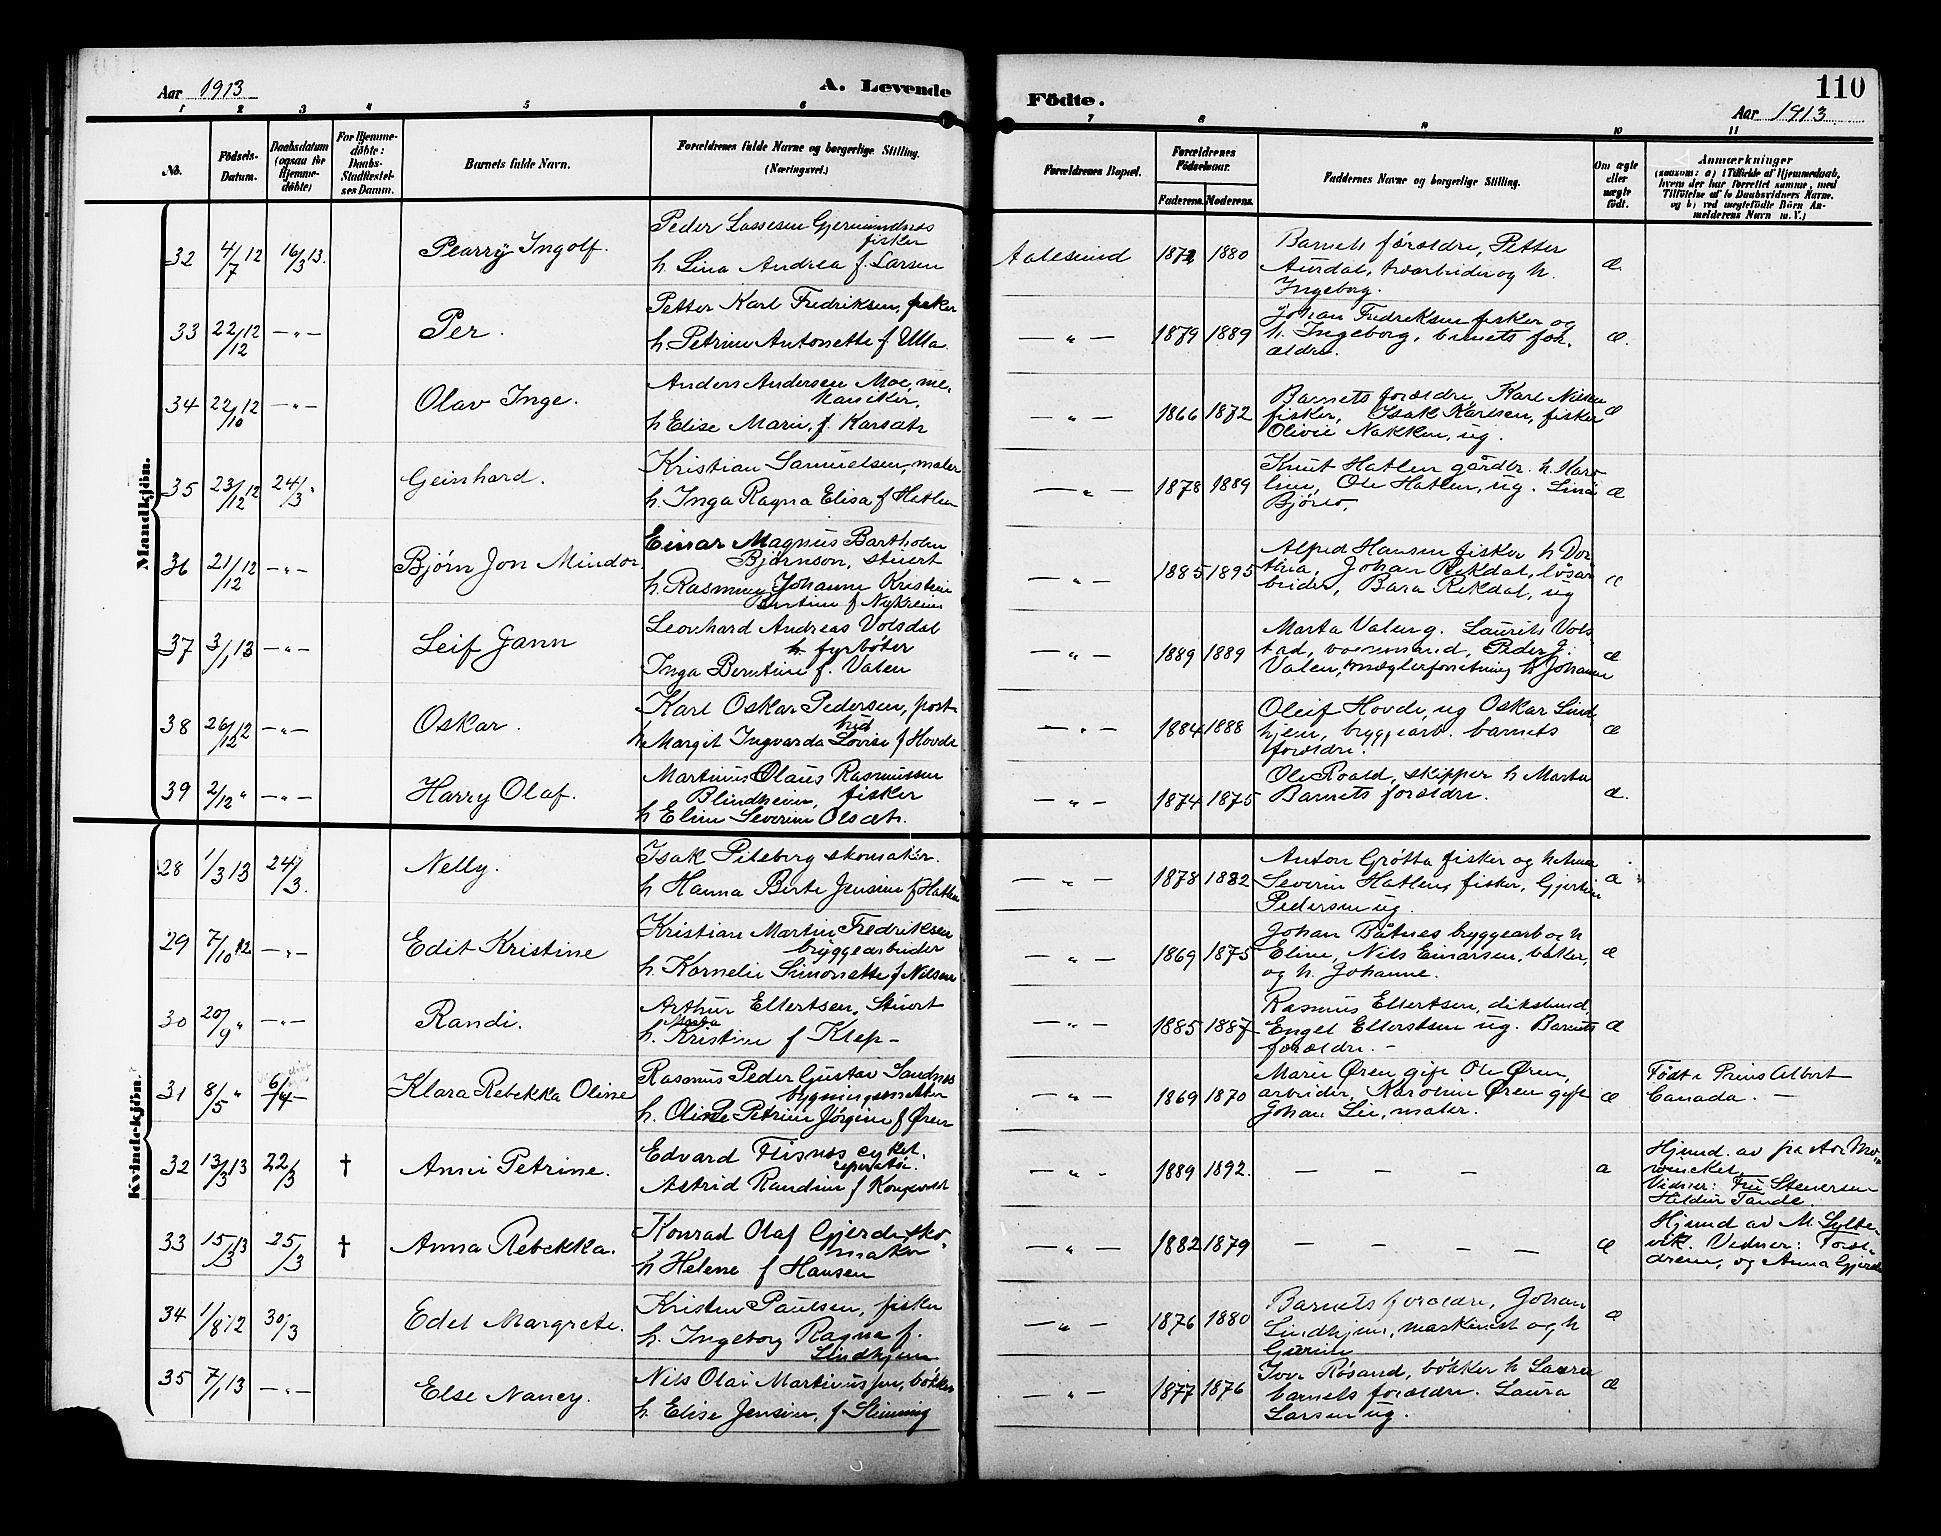 110
Aar 1913 A. Levende Födte. Aar 1913
1 2 3 4 5 6 7 8 9 10 11
No. Födsels-Datum. Daabsdatum (ogsaa for Hjemme-döbte) For Hjemme-döbte: Daabs-Stadfæstel-ses Datum. Barnets fulde Navn. Forældrenes fulde Navne og borgerlige Stilling. (Næringsvei.) Forældrenes Bopæl. Forældrenes Födselsaar. Faderens. Moderens. Faddernes Navne og borgerlige Stilling. Om ægte eller uægte født. Anmærkninger (saasom: a) i Tilfælde af Hjemmedaab, hvem der har forrettet samme, med Tilföielse af to Daabsvidners Navne, og b) ved uægtefödte Börn An-melderens Navn m. V.)
Mandkjön.
32 4/7 12 16/3 13. Pearry Ingolf. Peder Lassesen Gjermundnæs
fisker
h. Lina Andrea f. Larsen
Aalesund 1872 1880 Barnets forældre, Petter
Aurdal, arbeider og h.
Ingeborg. æ.
33 22/12 12 -"- Per. Petter Karl Fredriksen, fisker
h. Petrine Antonette f Ulla.
-"- 1879 1889 Johan Fredriksen fisker og
h. Ingeborg, barnets for-
ældre. æ.
34 22/10 12 -"- Olav Inge. Anders Andersen Moe, me-
kaniker,
h Elise Marie, f. Karsætr
-"- 1866 1872 Barnets forældre, Karl Nilsen
fisker, Isak Karlsen, fisker
Olivie Nakken, ug. æ
35 23/12 12 24/3 " Geinhard. Kristian Samuelsen, maler
h. Inga Ragna Elisa f Hatlen
-"- 1878 1889 Knut Hatlen gårdbr. h. Kar-
Ole Hatlen, ug. Lina
æ
36 21/12 12 -"- Bjørn Jon Mindor Einar Magnus Bartholm
Bjørnson, stuert
h. Rasmine Johanne Kristine
Bertine f Nykreim
-"- 1885 1895 Alfred Hansen fisker h Dor-
thea, Johan Rekdal, løsar-
beider, Bara Rekdal, ug æ
37 3/1 13 -"- Leif Jann Leonhard Andreas Volsdal
h. fyrbøter
Inga Berntine f. Valen
-"- 1889 1889 Marta Valen g. Laurits Vols-
tad, Peder J.
Valen, mæglerforretning h. Johanne æ
38 26/12 12 -"- Oskar. Karl Oskar Pedersen, post-
bud
h Margit Ingvarda Lovise f Hovde
-"- 1884 1888 Oleif Hovde, ug Oskar Lind-
hjem, bryggearb. barnets
forældre. æ
39 2/12 " -"- Harry Olaf. Martinus Olaus Rasmussen
Blindheim, fisker
h Eline Severine Olsætr.
-"- 1874 1875 Ole Roald, skipper h Marta
Barnets forældre. æ.
Kvindekjön.
28 1/3 13 24/3. Nelly. Isak Pileberg skomaker.
h Hanna Berte Jensine f Hatlen
-"- 1878 1882 Anton Grøtta fisker og h
Severin Hatlen, fisker, Gjertine
Pedersen ug. æ
29 7/10 12 -"- Edit Kristine Kristian Martin Fredriksen
bryggearbeider
h. Kornelie Simonette f Nilsen
-"- 1869 1875 Johan Båtnes bryggearb og h
Eline, Nils Einarsen, baker,
og h. Johanne. æ
30 20/9 " -"- Randi. Arthur Ellertsen, Stuert
Marta
h. Kristine f Klep -
-"- 1885 1887 Rasmus Ellertsen,
Engel Ellertsen ug. Barnets
forældre. - æ
31 8/5 " 6/4 Klara Rebekka Oline Rasmus Peder Gustav Sandnæs
bygningssnekker
h. Oline Petrine Jørgine f Øren
-"- 1869 1870 Marie Øren gift Ole Øren,
arbeider, Karoline Øren gift
Johan Lie, maler. æ Født i Prins Albert
Canada. -
32 13/3 13 22/3 † Anni Petrine. Edvard Flisnæs cykel-
reperatør.
Astrid Randine f Kongsvold
-"- 1889 1892. - - - æ Hjemd. av
Vidner: Fru Stenersen
Hildur Tande.
33 15/3 13 25/3 † Anna Rebekka. Konrad Olaf Gjerde, sko-
maker
h Helene f Hansen
-"- 1882 1879 - - - - æ Hjemd av M. Sylte-
vik. Vidner: Foræl-
drene, og Anna Gjerde
34 1/8 12 30/3 Edel Margrete. Kristen Paulsen, fisker
h. Ingeborg Ragna f.
Lindhjem
-"- 1876 1880 Barnets forældre, Johan
Lindhjem, maskinist og h
æ
35 7/1 13 -"- Else Nancy. Nils Olai Martinussen, bøkker
h. Elise Jensine, f Slinning
-"- 1877 1876 Iver Røsand, bøkker h Laura
barnets forældre. Laura
Larsen ug. æ